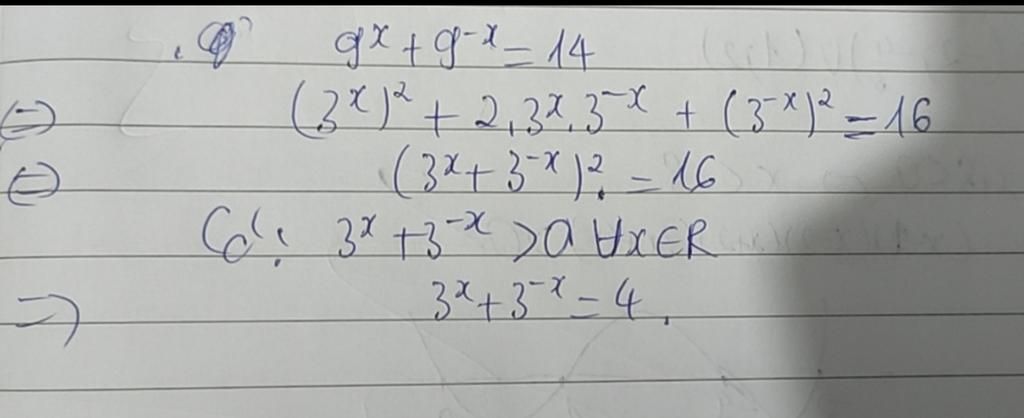 9^x + 9^-x = 14
⇔ (3^x)^2 + 2.3^x.3^-x + (3^-x)^2 = 16
⇔ (3^x + 3^-x)^2. = 16
Có: 3^x + 3^-x > 0 ∀x∈R
⇒ 3^x + 3^-x = 4.